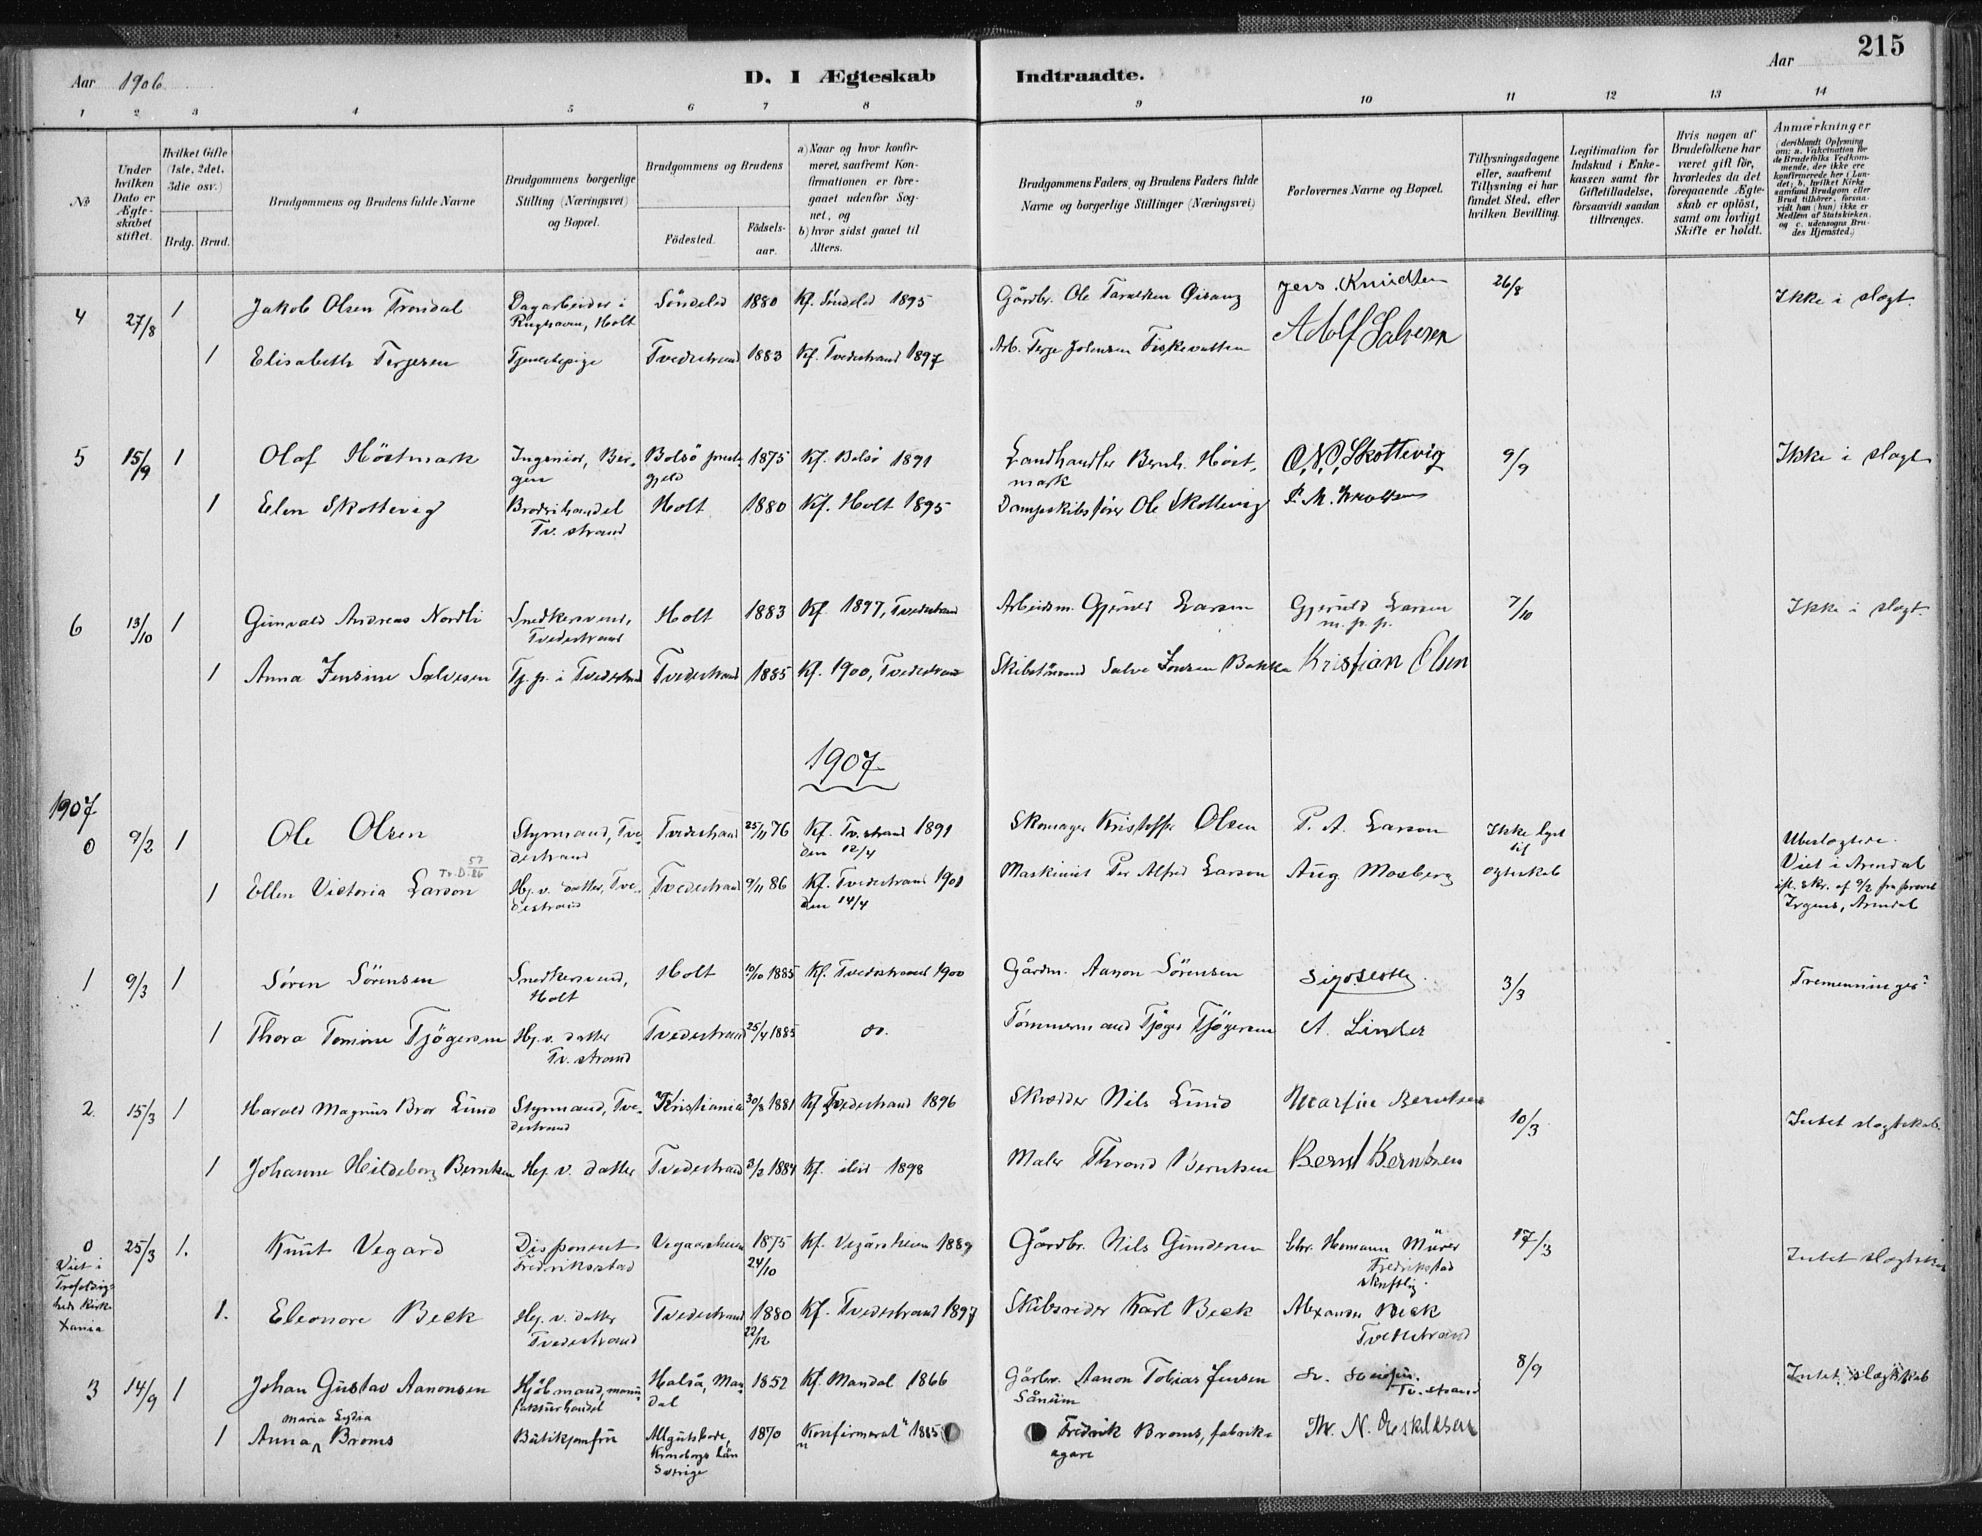 215
Aar 1906
D. I Ægteskab Indtraadte.
Aar
1 2 3 4 5 6 7 8 9 10 11 12 13 14
№
Under hvilken Dato er Ægteskabet stiftet.
Hvilket Gifte (1ste, 2det, 3die osv.)
Brdg. Brud.
Brudgommens og Brudens fulde Navne
Brudgommens borgerlige Stilling (Næringsvei) og Bopæl.
Brudgommens og Brudens
Födested.
Födselsaar.
a) Naar og hvor konfirmeret, saafremt Konfirmationen er foregaaet udenfor Sognet, og
b) hvor sidst gaaet til Alters.
Brudgommens Faders og Brudens Faders fulde Navne og borgerlige Stillinger (Næringsvei)
Forlovernes Navne og Bopæl.
Tillysningsdagene eller, saafremt Tillysning ei har fundet Sted, efter hvilken Bevilling.
Legitimation for Indskud i Enkekassen samt for Giftetilladelse, forsaavidt saadan tiltrænges.
Hvis nogen af Brudefolkene har været gift för, hvorledes da det foregaaende Ægteskab er oplöst, samt om lovligt Skifte er holdt.
Anmærkninger (deriblandt Oplysning om: a. Vakcination for de Brudefolks Vedkommende, der ikke ere konfirmerede her i Landet; b. hvilket Kirkesamfund Brudgom eller Brud tilhörer, forsaavidt han (hun) ikke er Medlem af Statskirken, og c. udensogns Brudes Hjemsted.)
4 27/8 1 Jakob Olsen Trondal Dagarbeider i Söndeled 1880 Kf. Söndeled 1895 Gårdbr. Ole Taraldsen Jens Knudsen 26/8 Ikke i slægt.
Holt
1 Elisabeth Terjesen Tjenestepige Tvedestrand 1883 Kf. Tvedestrand 1897 Arb. Terje Johnsen Fiskevatten Adolf Salvesen
5 15/9 1 Olaf Höstmark Ingeniör, Bergen Bolsö prestegjeld 1875 Kf. Bolsö 1891 Landhandler Bernh. Höstmark O. N. Skottevig 9/9 Ikke i slægt
1 Elen Skottevig Broderihandel Holt 1880 Kf. Holt 1895 Dampskibsförer Ole Skottevig P. M.
Tv. strand
6 13/10 1 Gunvald Andreas Nordli Snedkersvend, Holt 1883 Kf. 1897, Tvedestrand Arbeidsm. Gjeruld Larsen Gjeruld Larsen 7/10 Ikke i slægt.
Tvedestrand m. p. p.
1 Anna Jensine Salvesen Tj. p. i Tvedestrand Tvedestrand 1885 Kf. 1900, Tvedestrand Salve Jensen Bakke Kristian Olsen
1907
1907
0 9/2 1 Ole Olsen Styrmand, Tvedestrand Tvedestrand 25/11 76 Kf. Tv. strand 1891 Skomager Kristoffer Olsen P. A. Larson Ikke lyst til ægteskab Ubeslægtede.
den 12/4
Tv. D. 57/86
1 Ellen Victoria Larson Hj. v. datter, Tvedestrand Tvedestrand 9/11 86 Kf. Tvedestrand 1901 Maskinist Per Alfred Larson Aug. Mosberg Viet i Arendal
den 14/4
ifl. skr. af 9/2 fra provst Irgens, Arendal
1 9/3 1 Søren Sörensen Snedkersvend, Holt 10/10 1885 Kf. Tvedestrand 1900 Gårdm. Aanon Sörensen 3/3 Tremenninger?
Holt
1 Thora Tomine Tjögersen Hj. v. datter Tvedestrand 25/4 1885 do. Tömmermand Tjöger Tjögersen A. Linder
Tv. strand
2. 15/3 1 Harald Magnus Bror Lund Styrmand, Tvedestrand Kristiania 30/8 1881 Kf Tvedestrand 1896 Skrædder Nils Lund Martin Berntsen 10/3 Intet slægtskab.
1 Johanne Hildeborg Berntsen Hj. v. datter Tvedestrand 3/2 1884 Kf. ibid 1898 Maler Thrond Berntsen Bernt Berntsen
0 25/3 1. Knut Vegard Disponent Vegaarsheim 1875 Kf. Vegårsheim 1889 Gårdbr. Nils Gundersen Chr. Hermann Mürer 17/3 Intet slægtskab
Fredriksstad 24/10 Fredrikstad
skriftlig.
Viet i Trefoldigheds Kirke Xania
1. Eleonore Beck Hj. v. datter Tvedestrand 1880 Kf. Tvedestrand 1897 Skibsreder Karl Beck Alexander Beck
Tvedestrand 22/12 Tvedestrand
3 14/9 1 Johan Gustav Aanonsen Kjöbmand, manufakturhandel Halså, Mandal 1852 Kf. Mandal 1866 Gårbr. Aanon Tobias Jensen Sånum 8/9 Intet slægtskab
Tv. strand
Maria Lydia
1 Anna Broms Butikjomfru Allgutsboda, Kronobergs län Sverige 1870 Konfirmerat 1885 Fredrik Broms, fabriksägare Th. N. Aeskildsen